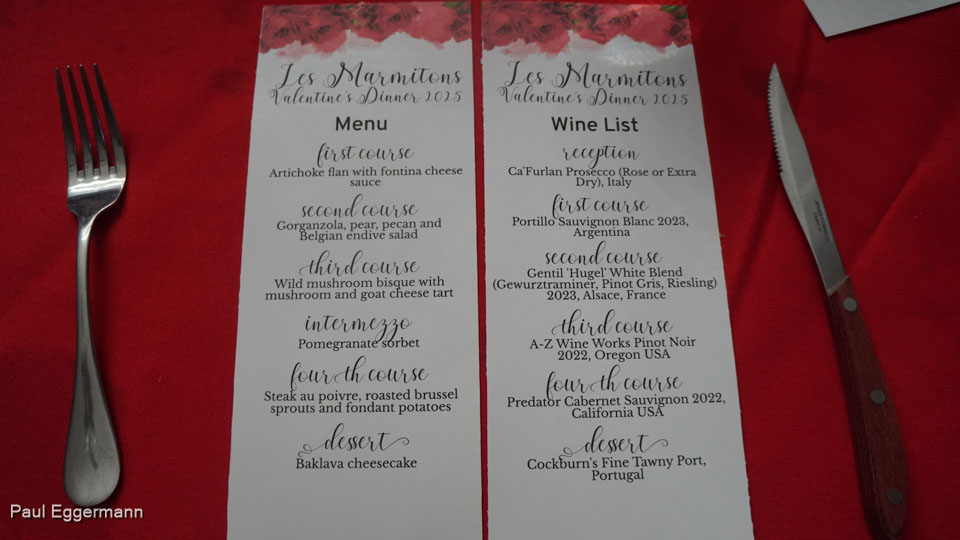 Les Marmitons
Valentine's Dinner 2025
Menu
first course
Artichoke flan with fontina cheese
sauce
second course
Gorganzola, pear, pecan and
Belgian endive salad
third course
Wild mushroom bisque with
mushroom and goat cheese tart
intermezzo
Pomegranate sorbet
fourth course
Steak au poivre, roasted brussel
sprouts and fondant potatoes
dessert
Baklava cheesecake
Les Marmitons
Valentine's Dinner 2025
Wine List
reception
Ca'Furlan Prosecco (Rose or Extra
Dry), Italy
first course
Portillo Sauvignon Blanc 2023,
Argentina
second course
Gentil 'Hugel' White Blend
(Gewurztraminer, Pinot Gris, Riesling)
2023, Alsace, France
third course
A-Z Wine Works Pinot Noir
2022, Oregon USA
fourth course
Predator Cabernet Sauvignon 2022,
California USA
dessert
Cockburn's Fine Tawny Port,
Portugal
Paul Eggermann